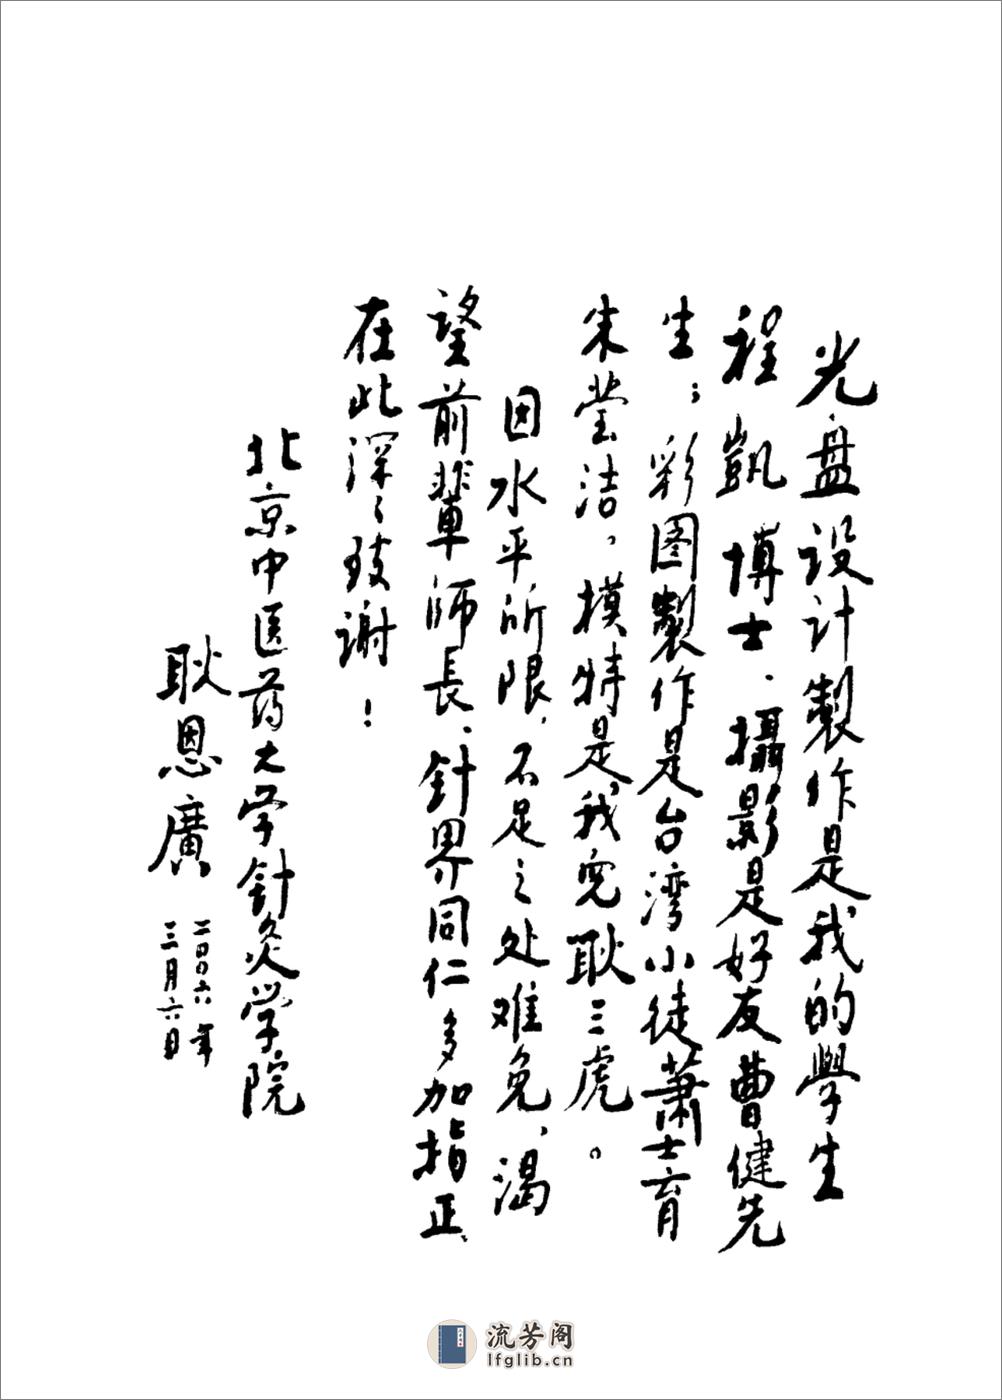 光盘设计製作是我的學生
程凱博士.攝影是好友曹健先
生;彩图製作是台湾小徒蕭士育
朱莹洁,模特是我兒耿三虎。
因水平所限,不足之处难免、渴
望前輩師長、針界同仁多加指正、
在此深々致谢!
北京中医药大学針灸学院
耿恩廣
二00六年
三月六日
流芳阁
lfglib.cn